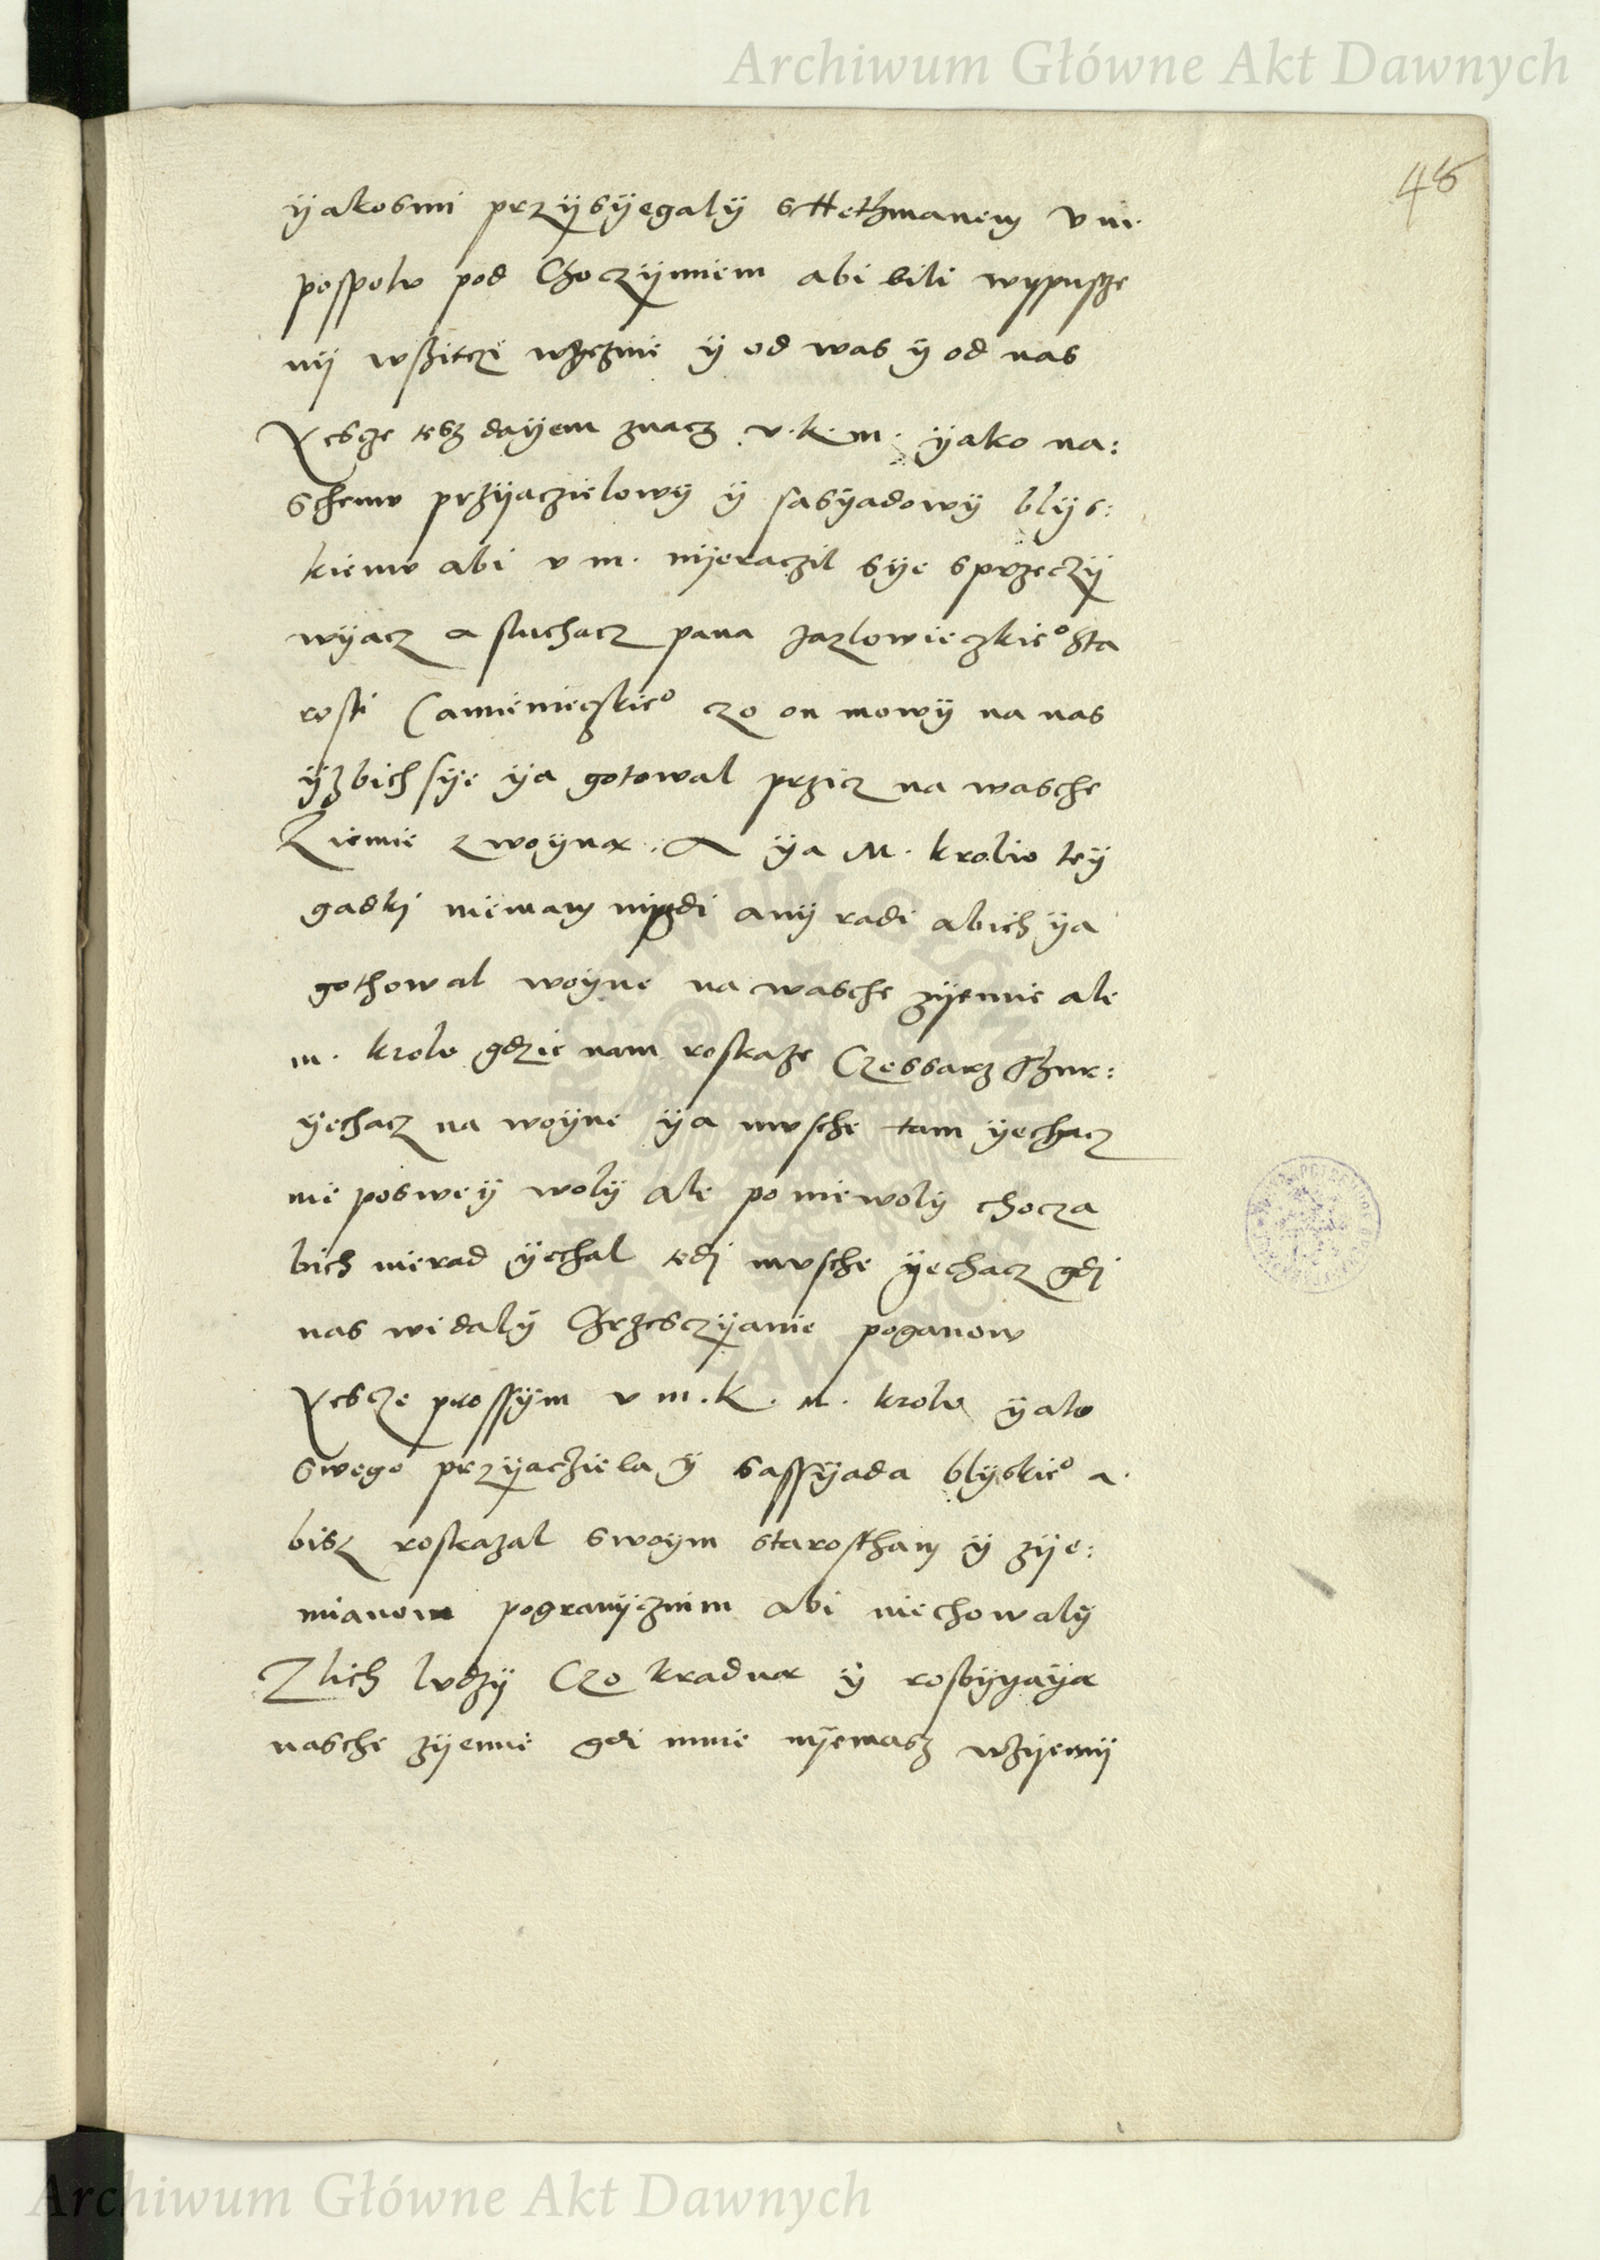 Archiwum Główne Akt Dawnych
46
ÿakosmi przÿsÿegalÿ sHethmanem v m.
pospolv pod Choczÿmiem abi bili wypusze
nÿ wszitczi wzczmie ÿ od was ÿ od nas
Yescze tesz dayem znacz v. k. m. ÿako na:
schemv przÿaczielowÿ ÿ sasÿadowÿ blÿs:
kiemv abi v m. nÿeraczil sÿe sprzeczÿ
wÿacz a sluchacz pana Jazlowieczkieo Sta
rosti Camienieczkieo czo on mowÿ na nas
ÿzbich sÿe ÿa gotowal przicz na wasche
Ziemie z woÿna. A ÿa M. krolio teÿ
gadkj niemam nigdi anÿ radi abich ÿa
gothowal woÿne na wasche zÿemie ale
m. krolv gdzie nam roskaze Czessarz Thur:
ÿechacz na woÿne ÿa mvsche tam ÿechacz
nie posweÿ wolÿ ale poniewolÿ chocza
bich nierad ÿechal tedj mvsche ÿechacz gdj
nas widalÿ Chrzesczÿanie poganow
Yescze prossÿm v m. K. M. krolv ÿako
swego przÿacziela ÿ sassÿada blÿskieo a.
bisz roskazal swoÿm starostham ÿ zÿe:
mianom pogranÿcznim abi niechowalÿ
Zlich lvdzÿ Czo kradna ÿ rosbÿyaÿa
nasche zÿemie gdi mnie nÿemasz wzÿemÿ
Archiwum Główne Akt Dawnych